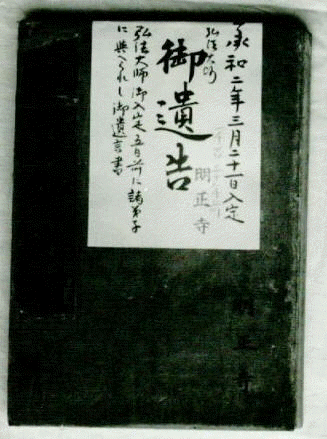 承和二年三月二十一日入定
弘法大師
御遺告
明正寺
弘法大師御入定五日前に諸弟子
に與へられし御遺言書
明正寺